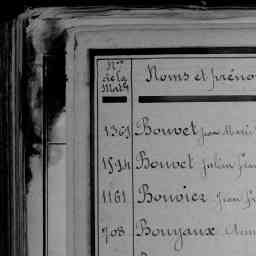 Nos
de la
Matle
Noms et préno
1369 Bouvet Jean Marie
1514 Bouvet Julien Fran
1161 Bouvier Jean Fr
708 Bouyaux